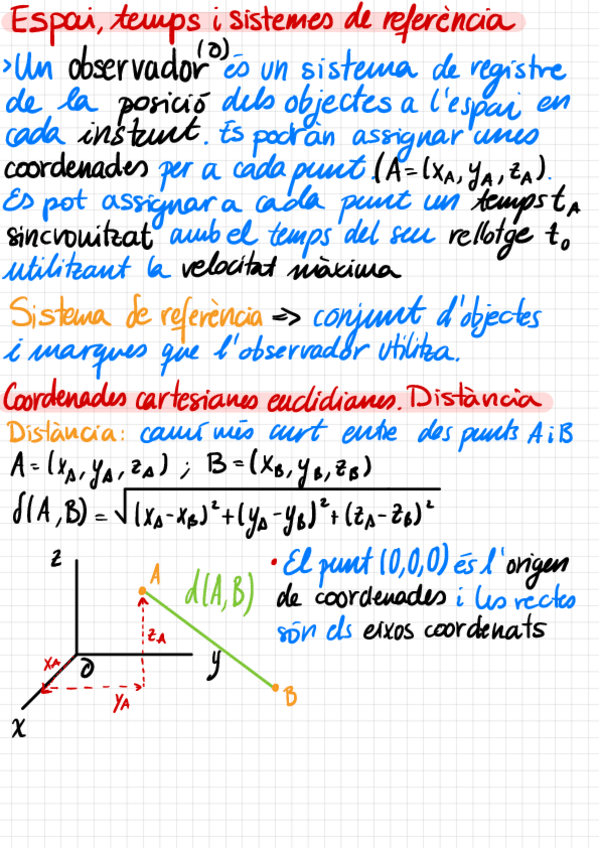 Espai, temps i sistemes de referència
>Un observador (O) és un sistema de registre
de la posició dels objectes a l'espai en
cada instant. Es podran assignar unes
coordenades per a cada punt (A=(xA, yA, zA).
Es pot assignar a cada punt un temps tA
sincronitzat amb el temps del seu rellotge to
utilitzant la velocitat màxima
Sistema de referència => conjunt d'objectes
i marques que l'observador utilitza.
Coordenades cartesianes euclidianes. Distància
Distància: camí més curt entre dos punts A i B
A=(xA, yA, zA) ; B=(xB, yB, zB)
d(A,B) = √(xA-xB)²+(yA-yB)²+(zA-zB)²
• El punt (0,0,0) és l'origen
de coordenades i les rectes
són els eixos coordenats
z
A
d(A,B)
zA
xA
O
y
yA
B
x